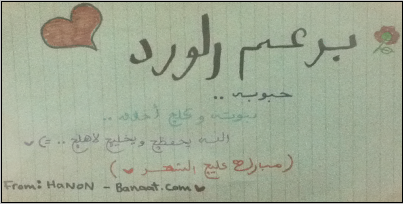 برعم الورد
حبوبه ..
الله يحفظج ويخليج لأهلج .. =) ♥
(مبارك عليج الشهر ♥)
From: HaNoN - Banaat.com ♥